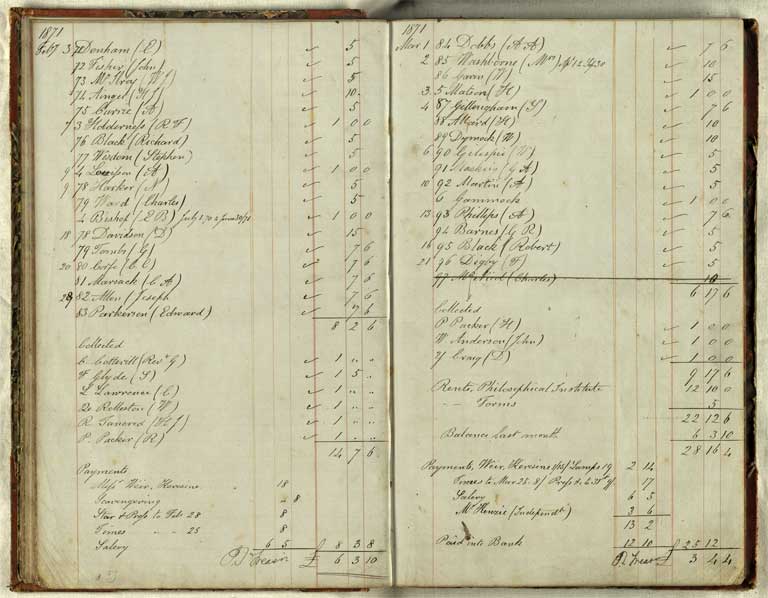 1871
Feb 3 71 Denham (E) ✓ 5
72 Fisher (John) ✓ 5
73 (W) ✓ 5
74 Ainger ✓ 10
75 Currie (A) ✓ 5
7 3 Holderness (R F) ✓ 1 0 0
76 Black (Richard) ✓ 5
77 Wisdom (Stephen) ✓ 5
9 4 Louisson (A) ✓ 1 0 0
9 78 Harker ✓ 5
79 Ward (Charles) ✓ 5
4 Bishop (E B) July 1 70 ✓ 1 0 0
18 78 Davidson (D) ✓ 15
79 Tombs (G) ✓ 7 6
20 80 Corfe (C C) ✓ 7 6
81 Marsack (C A) ✓ 7 6
28 82 Allen (Joseph ✓ 7 6
83 Parkerson (Edward) ✓ 7 6
8 2 6
Collected
C Cotterill (Revd G) ✓ 1 " "
F Glyde (S) ✓ 1 5 "
L Lawrence (C) ✓ 1 " "
Do Rolleston (W) ✓ 1 " "
R Tancred (H J) ✓ 1 " "
P. Packer (R) ✓ 1 " "
14 7 6
Payments
Messrs Weir, Kerosine " 18
Scavengering " 8
Star & Press to Feb 28 8
Times " " 25 8
Salary 6 5 £ 8 3 8
£ 6 3 10
1871
Mar 1 84 Dobbs (A A) ✓ 7 6
2 85 Washborne (Mrs) ✓ 10
86 Garin ✓ 15
3 5 Matson (H) ✓ 1 0 0
4 87 Gellingham (S) ✓ 7 6
88 Allard (H) ✓ 10
89 Dymock (W) ✓ 10
6 90 Gilespie ✓ 5
91 (G A) ✓ 5
10 92 Martin (A) ✓ 5
6 Gammack ✓ 1 0 0
13 93 Phillips (A) ✓ 7 6
94 Barnes (G R) ✓ 5
16 95 Black (Robert) ✓ 5
21 96 Digby (F) ✓ 5
97 (Charles) 10
6 17 6
Collected
P Packer (H) ✓ 1 0 0
W Anderson (John) ✓ 1 0 0
Craig (D) ✓ 1 0 0
9 17 6
Rents, Philosophical Institute 12 10 0
" " Forms 5
22 12 6
Balance last month 6 3 10
28 16 4
Payments, Weir, Kerosine Lamps 19 2 14
Times to Mar 25. 8/ Press 17
Salary 6 5
McKenzie (Independt) 3 6
13 2
Paid into Bank 12 10 £ 25 12
£ 3 4 4